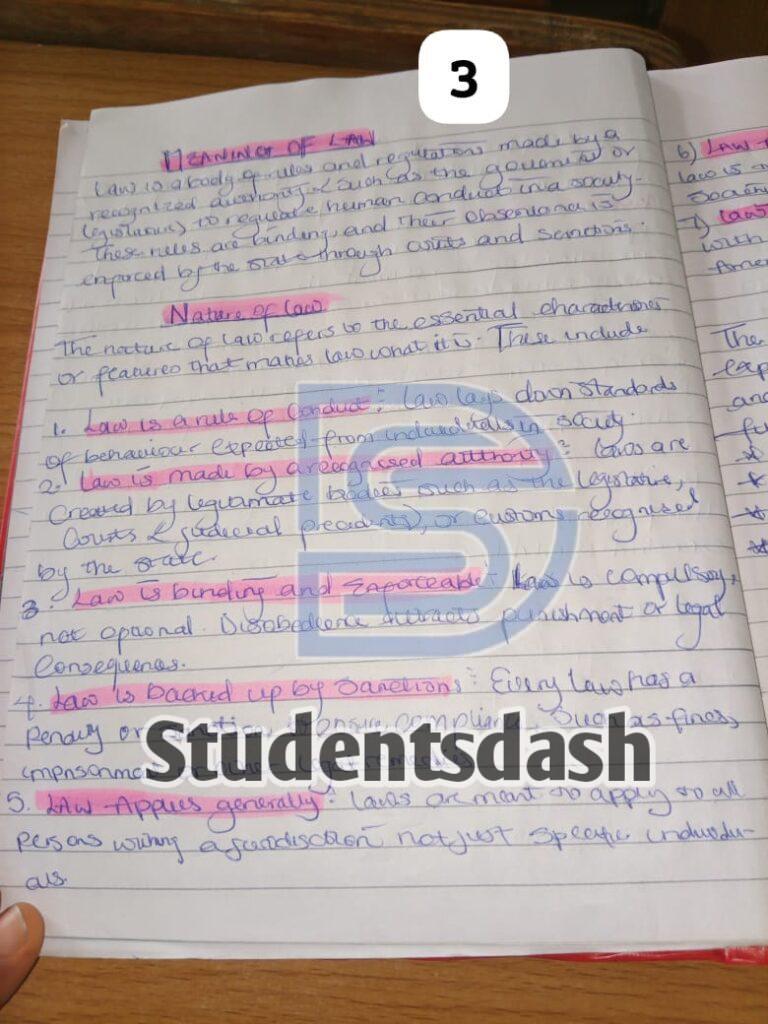 3
MEANING OF LAW
Law is a body of rules and regulations made by a
recognized authority (such as the government or
legislature) to regulate human conduct in a society.
These rules are binding and their observance is
enforced by the state through courts and sanctions.
Nature of law
The nature of law refers to the essential characteristics
or features that makes law what it is. These include
1. Law is a rule of conduct: Law lays down standards
of behaviour expected from individuals in society.
2. Law is made by a recognised authority: laws are
created by legitimate bodies such as the legislative,
Courts (judicial precedents), or customs recognised
by the state.
3. Law is binding and enforceable: Law is compulsory,
not optional. Disobedience attracts punishment or legal
Consequences.
4. Law is backed up by Sanctions: Every law has a
Penalty or to ensure compliance. Such as fines,
imprisonment
Studentsdash
5. LAW Applies generally: laws are meant to apply to all
Persons within a jurisdiction not just specific individu-
als.
6) LAW
law is
7) law
with
The
exp
and